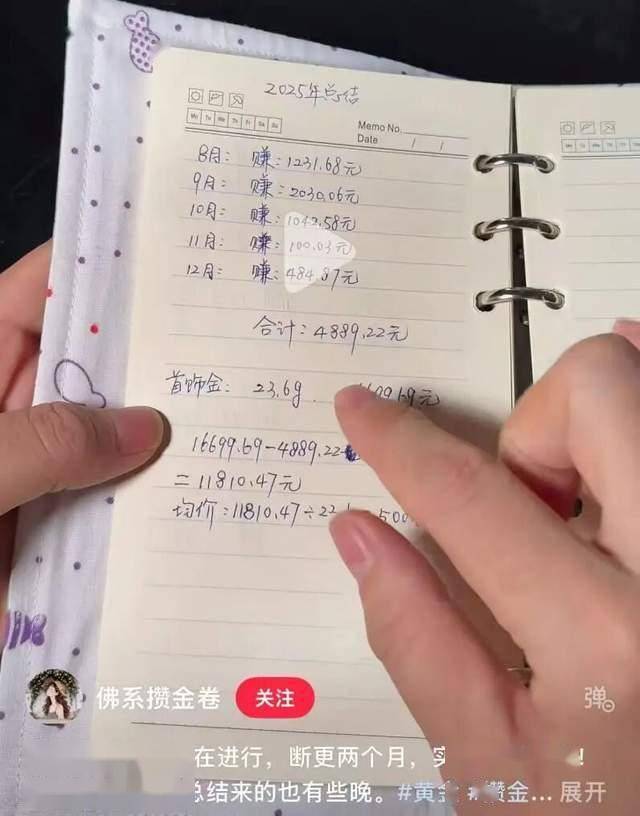 2025年总结
Memo No.
Date / /
Mo Tu We Th Fr Sa Su
8月: 赚:1231.68元
9月: 赚:2030.06元
10月: 赚:1042.58元
11月: 赚:100.03元
12月: 赚:484.87元
合计:4889.22元
首饰金: 23.6g. 元
16699.69-4889.22
=11810.47元
均价:11810.47÷
佛系攒金卷 关注
弹
在进行,断更两个月,
总结来的也有些晚。#黄金 #攒金... 展开